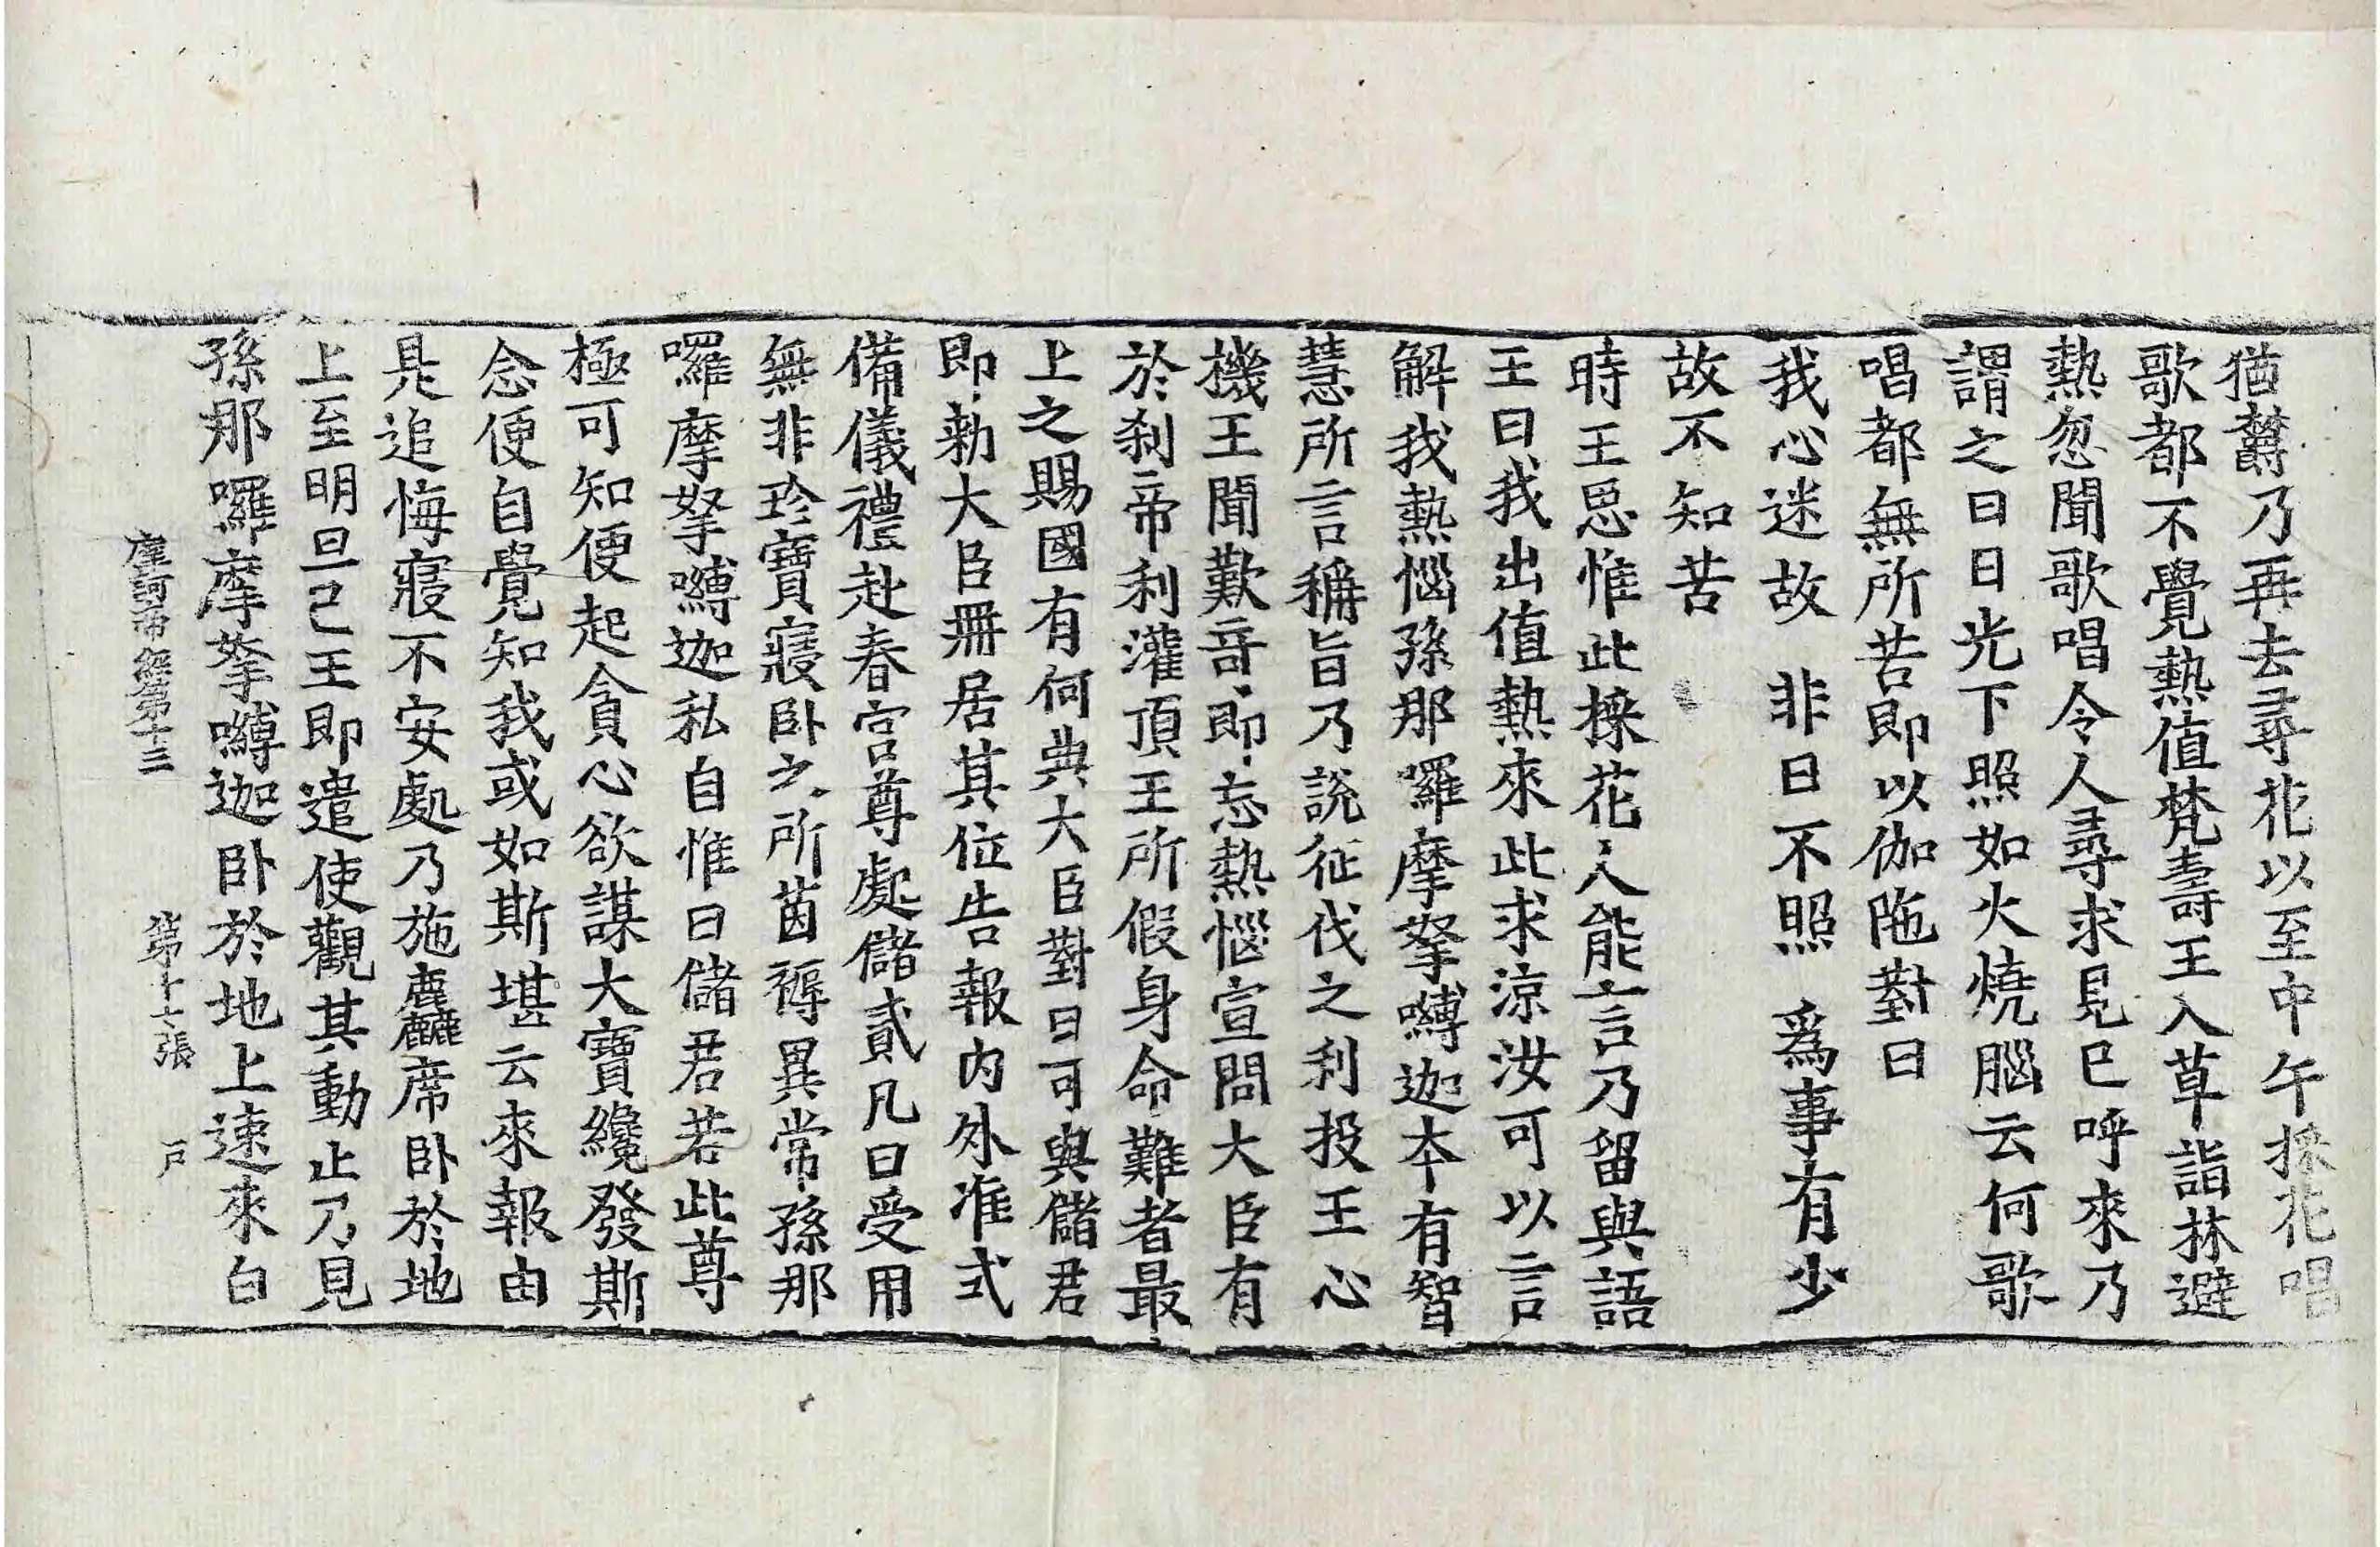 猶鬱乃再去尋花以至中午採花唱
歌都不覺熱值梵壽王入草詣林避
熱忽聞歌唱令人尋求見已呼來乃
謂之曰日光下照如火燒腦云何歌
唱都無所苦即以伽陁對曰
我心迷故　非日不照　爲事有少
故不知苦
時王思惟此採花人能言乃留與語
王曰我出值熱來此求涼汝可以言
解我熱惱孫那囉摩拏嚩迦本有智
慧所言稱旨乃說征伐之利投王心
機王聞歎奇即忘熱惱宣問大臣有
於刹帝利灌頂王所假身命難者最
上之賜國有何典大臣對曰可與儲君
即勑大臣冊居其位告報内外准式
備儀禮赴春宮尊處儲貳凡曰受用
無非珍寶寢卧之所茵褥異常孫那
囉摩拏嚩迦私自惟曰儲君若此尊
極可知便起貪心欲謀大寶纔發斯
念便自覺知我或如斯堪云來報由
是追悔寢不安處乃施麤席卧於地
上至明旦已王即遣使觀其動止乃見
孫那囉摩拏嚩迦卧於地上速來白
摩訶帝經第十三　第十七張　戶